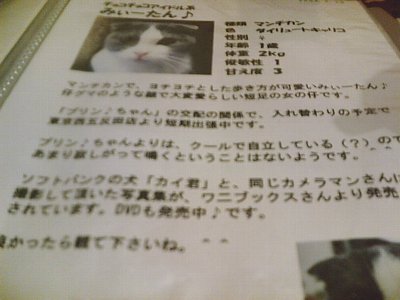 チョコチョコアイドル系
みぃーたん♪
種類 マンチカン
色 ダイリュートキャリコ
性別 ♀
年齢 1歳
体重 2kg
俊敏性 1
甘え度 3
マンチカンで、ヨチヨチとした歩き方が可愛いみぃーたん♪
仔グマのような顔で大変愛らしい短足の女の仔です。
「プリン♪ちゃん」の交配の関係で、入れ替わりの予定で
東京西五反田店より短期出張中です。
プリン♪ちゃんよりは、クールで自立している(?)ので
あまり寂しがって鳴くということはないようです。
ソフトバンクの犬「カイ君」と、同じカメラマンさんに
撮影して頂いた写真集が、ワニブックスさんより発売
されています。DVDも発売中♪です。
良かったら観て下さいね。^ ^